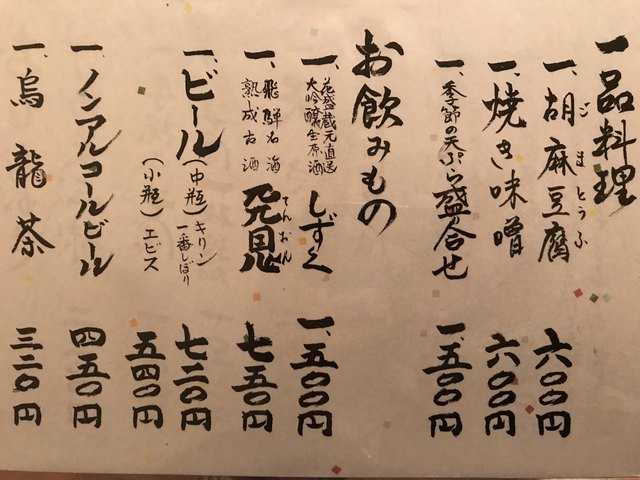 一品料理
一、胡麻豆腐 六〇〇円
ごまとうふ
一、焼き味噌 六〇〇円
一、季節の天ぷら盛合せ 一、五〇〇円
お飲みもの
一、花盛蔵元直送
大吟醸生原酒 しずく 一、五〇〇円
一、飛騨名酒
熟成古酒 天恩 七五〇円
てんおん
一、ビール(中瓶)キリン
一番しぼり 七二〇円
(小瓶)エビス 五四〇円
一、ノンアルコールビール 四五〇円
一、烏龍茶 三二〇円